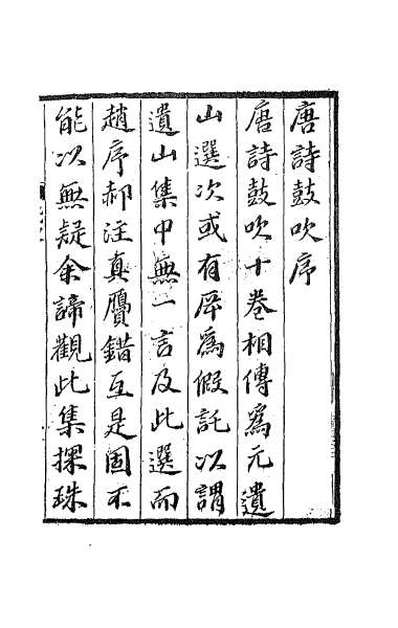 唐詩鼓吹序
唐詩鼓吹十卷相傳為元遺
山選次或有斥為假託以謂
遺山集中無一言及此選而
趙序郝注真贗錯互是固不
能以無疑余諦觀此集探珠